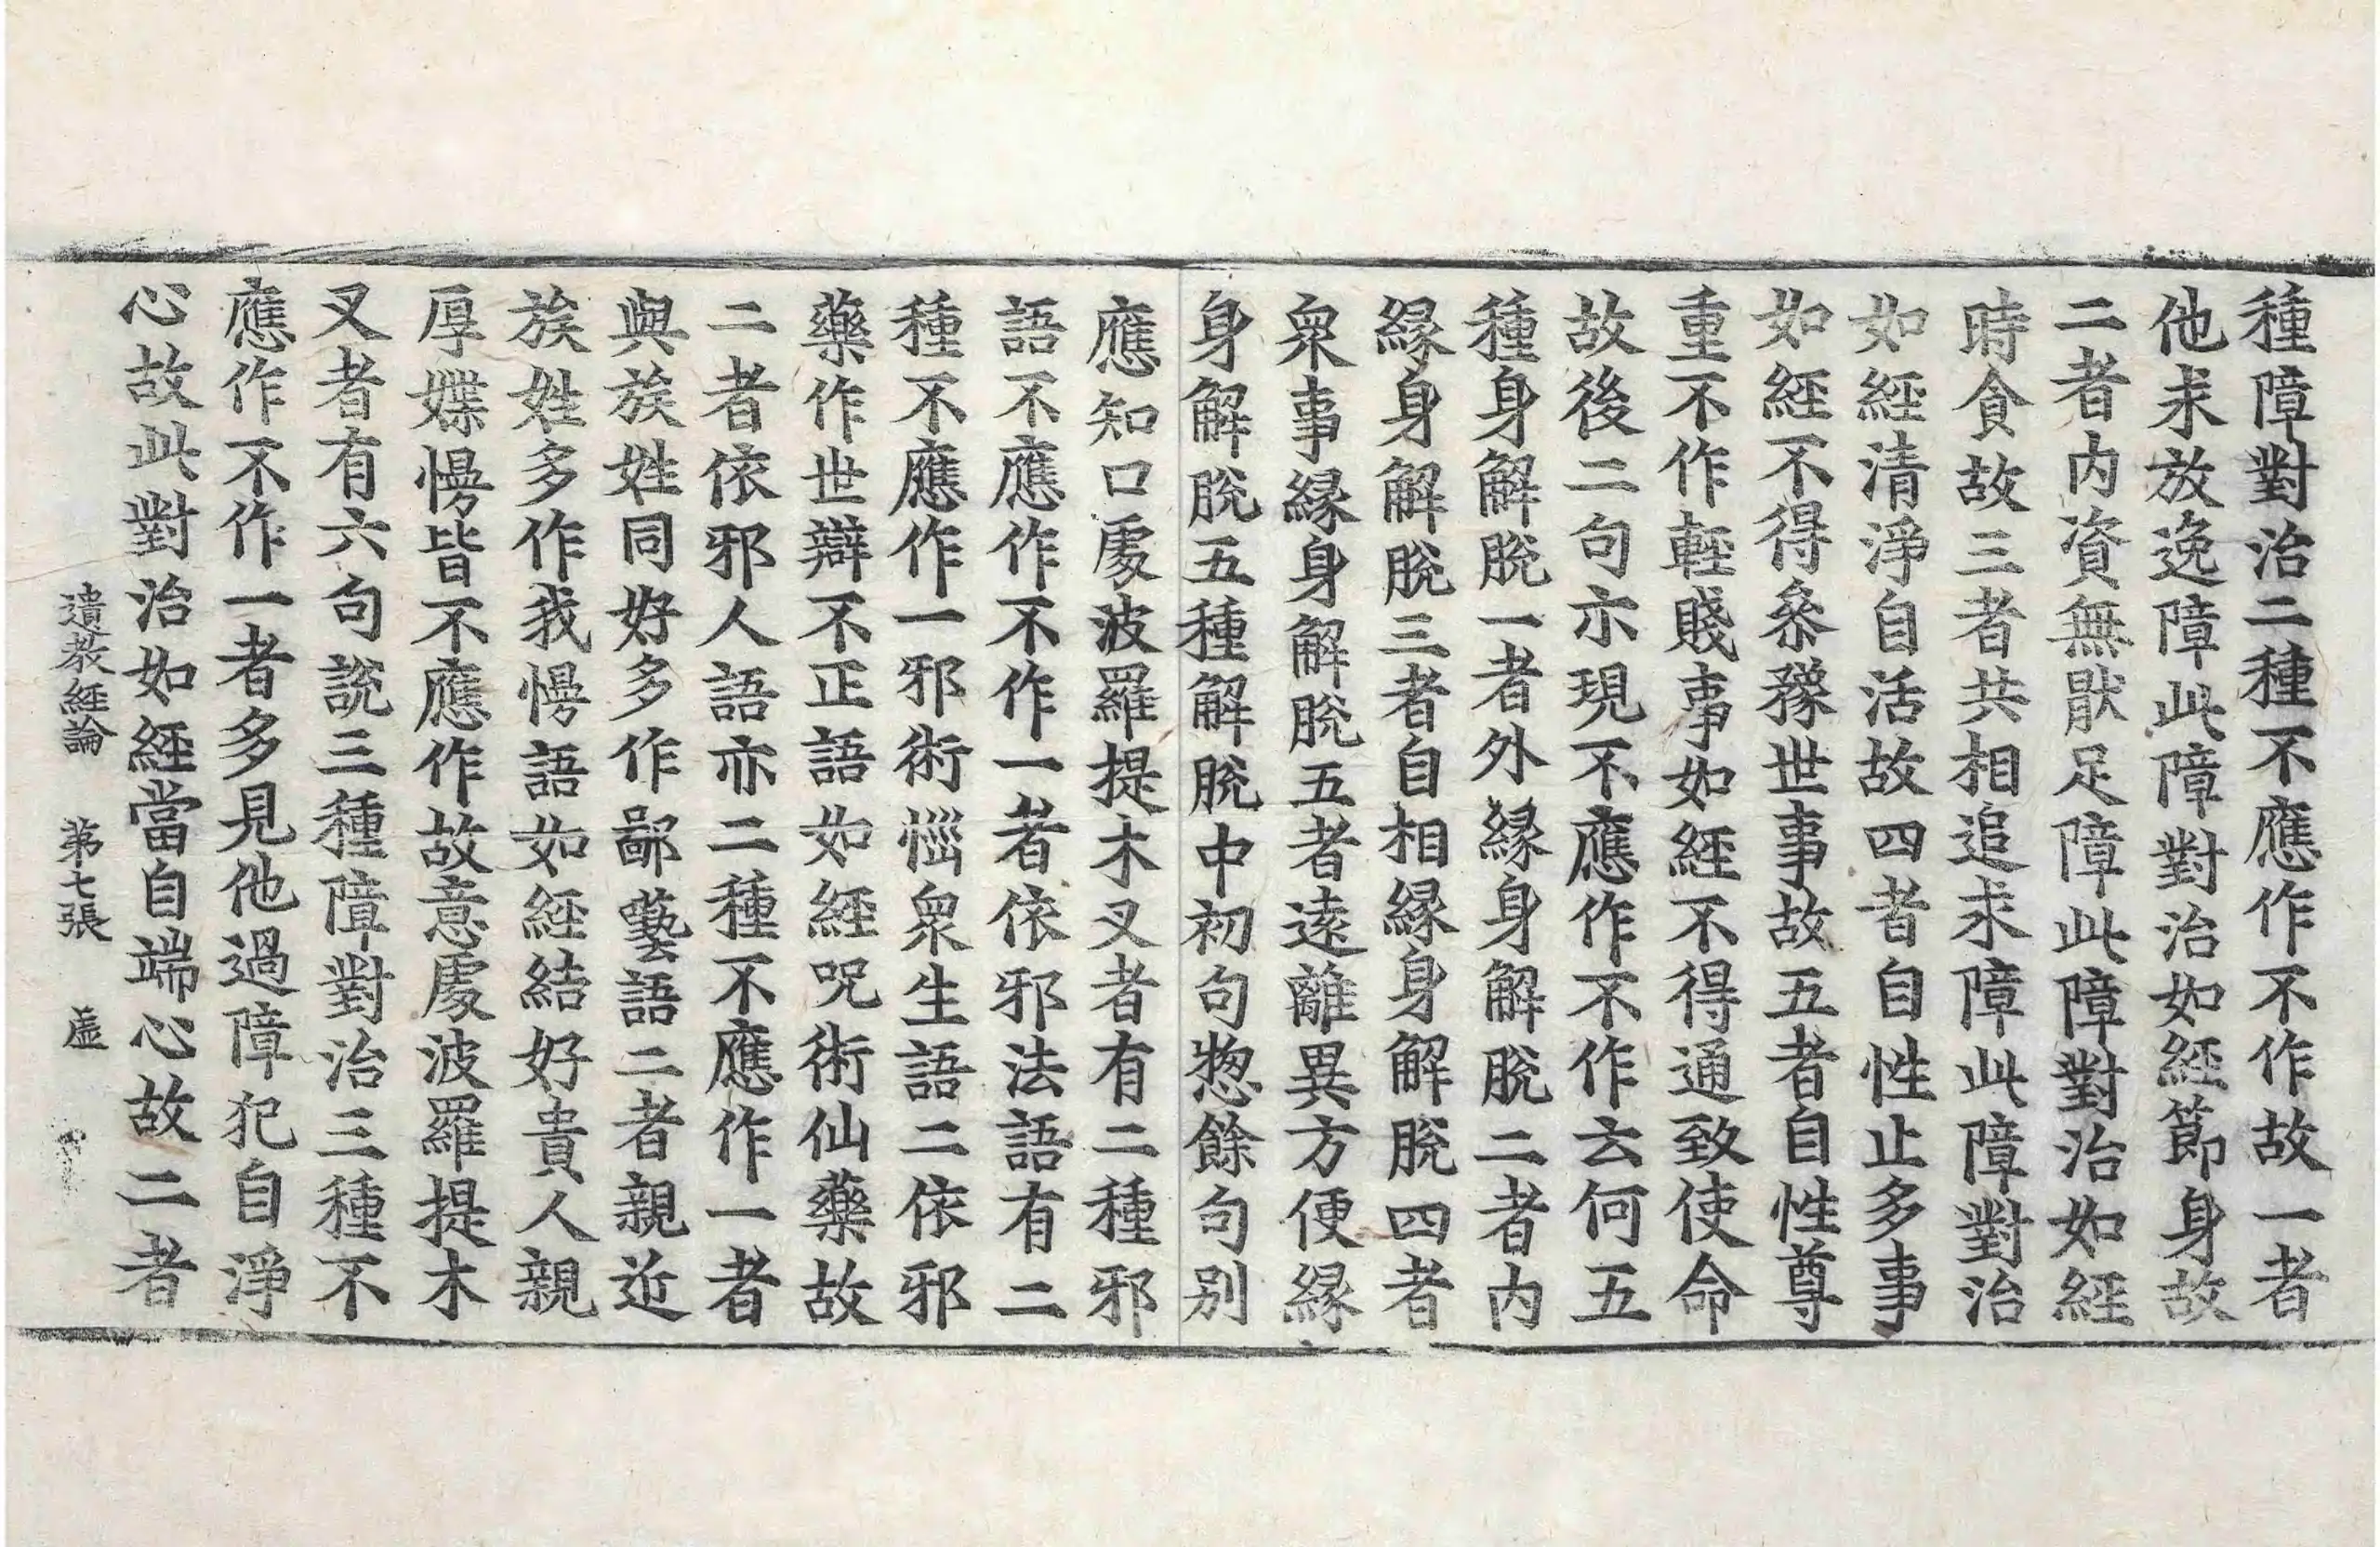 種障對治二種不應作不作故一者
他求放逸障此障對治如經節身故
二者内資無猒足障此障對治如經
時食故三者共相追求障此障對治
如經清淨自活故四者自性止多事
如經不得叅豫世事故五者自性尊
重不作輕賤事如經不得通致使命
故後二句示現不應作不作云何五
種身解脫一者外縁身解脫二者内
縁身解脫三者自相縁身解脫四者
衆事縁身解脫五者遠離異方便縁
身解脫五種解脫中初句惣餘句别
應知口處波羅提木叉者有二種邪
語不應作不作一者依邪法語有二
種不應作一邪術惱衆生語二依邪
藥作世辯不正語如經呪術仙藥故
二者依邪人語亦二種不應作一者
與族姓同好多作鄙藝語二者親近
族姓多作我慢語如經結好貴人親
厚媟慢皆不應作故意處波羅提木
叉者有六句說三種障對治三種不
應作不作一者多見他過障犯自淨
心故此對治如經當自端心故二者
遺教經論 第七張 虛